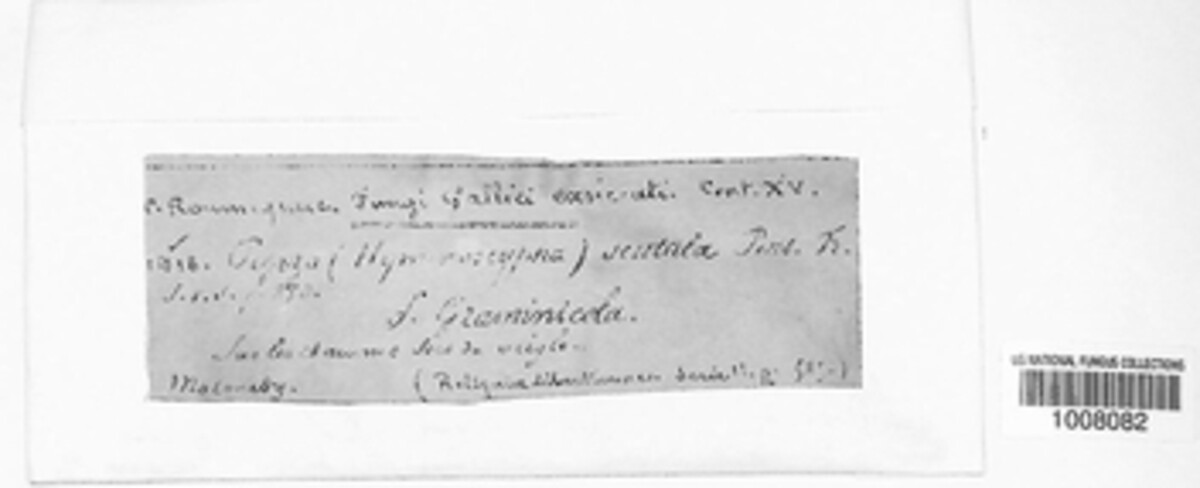 C. Roumeguère. Fungi Gallici exsiccati. Cent. XV.
Peziza (Hymenoscypha) scutula Pers. K.
f. Graminicola.
Sur les chaumes secs de seigle.
Malmedy. (Reliquiae Libertianae
U.S. NATIONAL FUNGUS COLLECTIONS
1008082